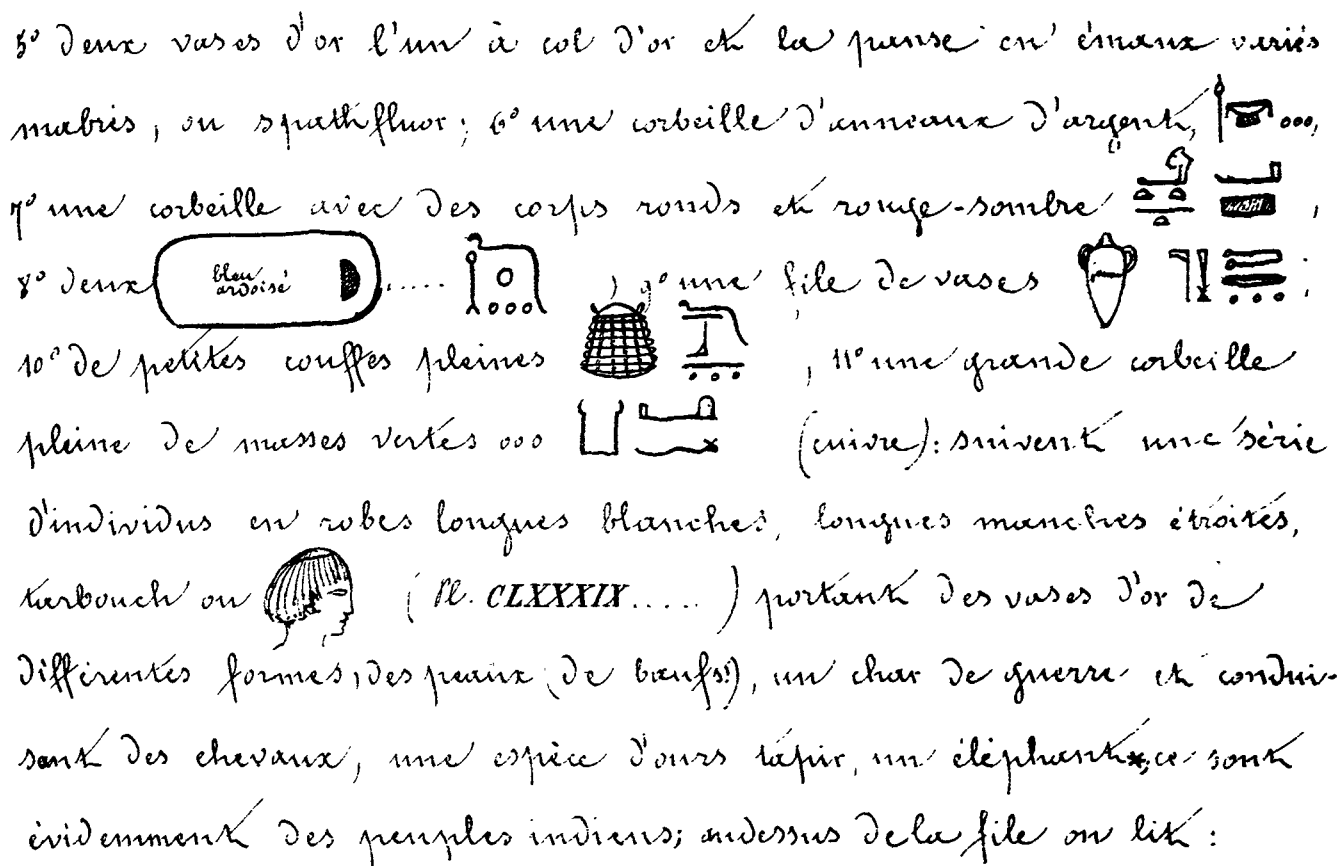 5° deux vases d'or l'un à col d'or et la panse en émaux variés
mabrés, ou spathfluor; 6° une corbeille d'anneaux d'argent,
7° une corbeille avec des corps ronds et rouge-sombre ,
8° deux bleu ardoisé ..... , 9° une file de vases ;
10° de petites couffes pleines , 11° une grande corbeille
pleine de masses vertes ooo (cuivre): suivent une série
d'individus en robes longues blanches, longues manches étroites,
tarbouch ou (Pl. CLXXXIX.....) portant des vases d'or de
différentes formes, des peaux (de bœufs?), un char de guerre et condui-
sant des chevaux, une espèce d'ours tapir, un éléphant*; ce sont
évidemment des peuples indiens; audessus de la file on lit :